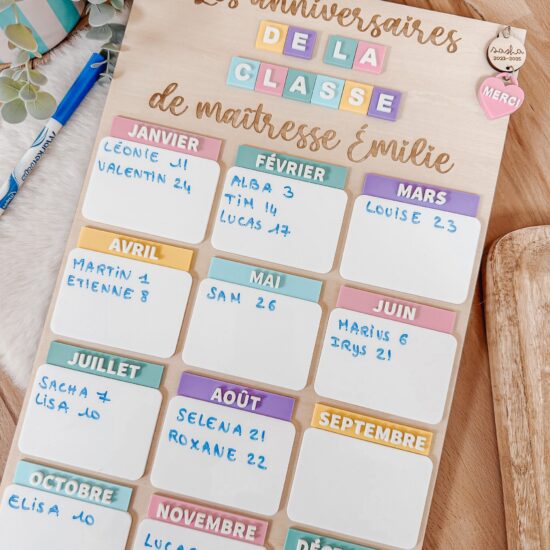 Les anniversaires
DE LA
CLASSE
de maîtresse Émilie
sasha
2023-2025
MERCI
JANVIER
LÉONIE 11
VALENTIN 24
FÉVRIER
ALBA 3
TIM 14
LUCAS 17
MARS
LOUISE 23
AVRIL
MARTIN 1
ETIENNE 8
MAI
SAM 26
JUIN
MARIUS 6
IRYS 21
JUILLET
SACHA 7
LISA 10
AOÛT
SELENA 21
ROXANE 22
SEPTEMBRE
OCTOBRE
ELISA 10
NOVEMBRE
LUCAS